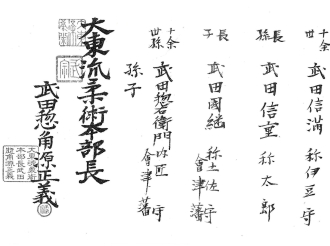 十余
世 武田信満 称伊豆守
長
孫 武田信重 称太郎
長
子 武田國継 称土佐守
會津藩
十余
世孫 武田惣右衛門 内匠守
會津藩
孫子
大東流柔術本部長
武田惣角源正義
大東流柔術
本部長武田
惣角源正義